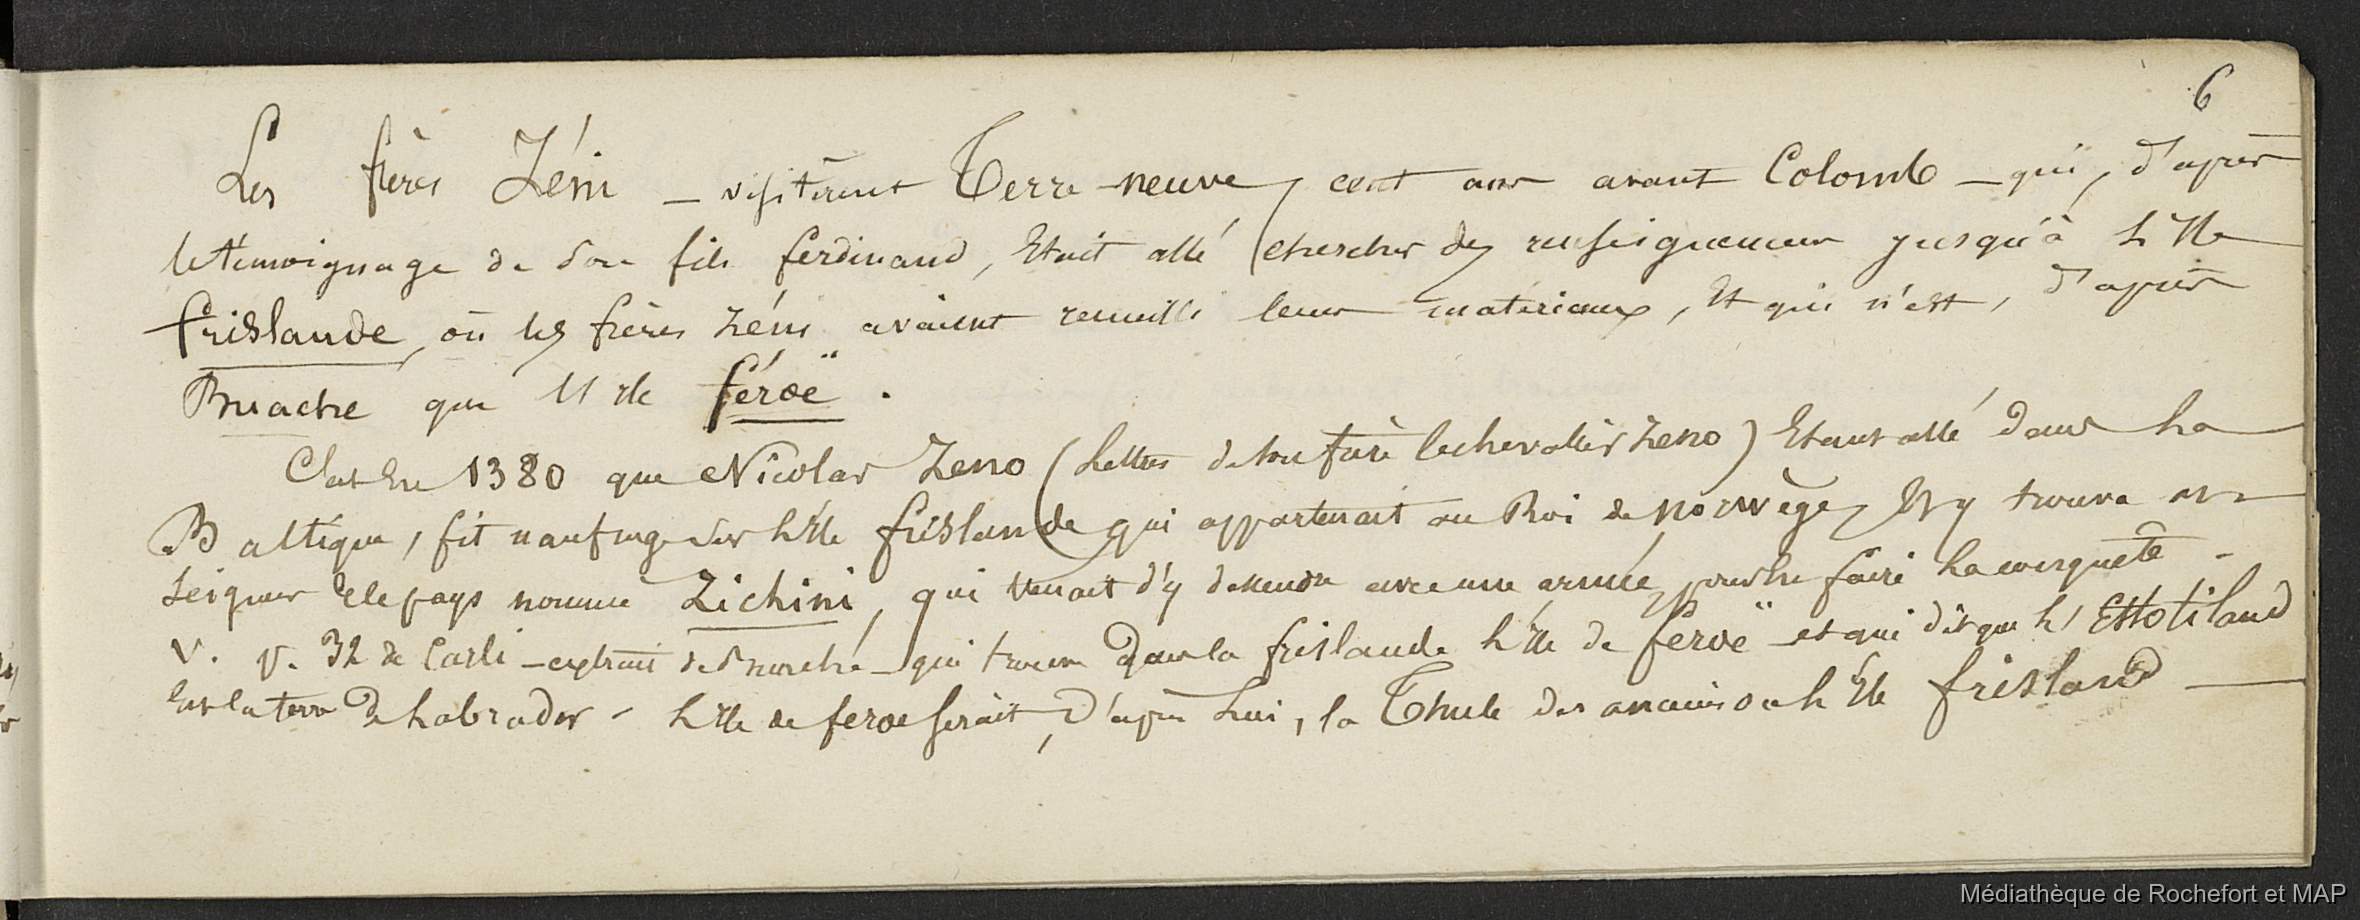 6
Les frères Zéni – visitèrent Terre-neuve, cent ans avant Colomb – qui, d'après
le témoignage de son fils ferdinand, Etait allé chercher des renseignemens jusqu'à l'Ile
frislande, où les frères Zéni avaient recueilli leurs matériaux, Et qui n'est, d'après
Buache que l'Ile féroë.
C'est En 1380 que Nicolas Zeno (Lettres de son frère le chevalier Zeno) Etant allé dans la
Baltique, fit naufrage sur l'Ile frislande qui appartenait au Roi de norwège, Il y trouva un
seigneur de le pays nommé Zichini, qui venait d'y descendre avec une armée, pour la faire la conquête –
V. p. 32 de Carli – extrait de Buache – qui trouve dans la frislande l'Ile de feroë – et qui dit que l'Estotiland
Est la terre de Labrador – l'Ile de feroe serait, d'après Lui, la Thule des anciens ou l'Ile frisland –
Médiathèque de Rochefort et MAP